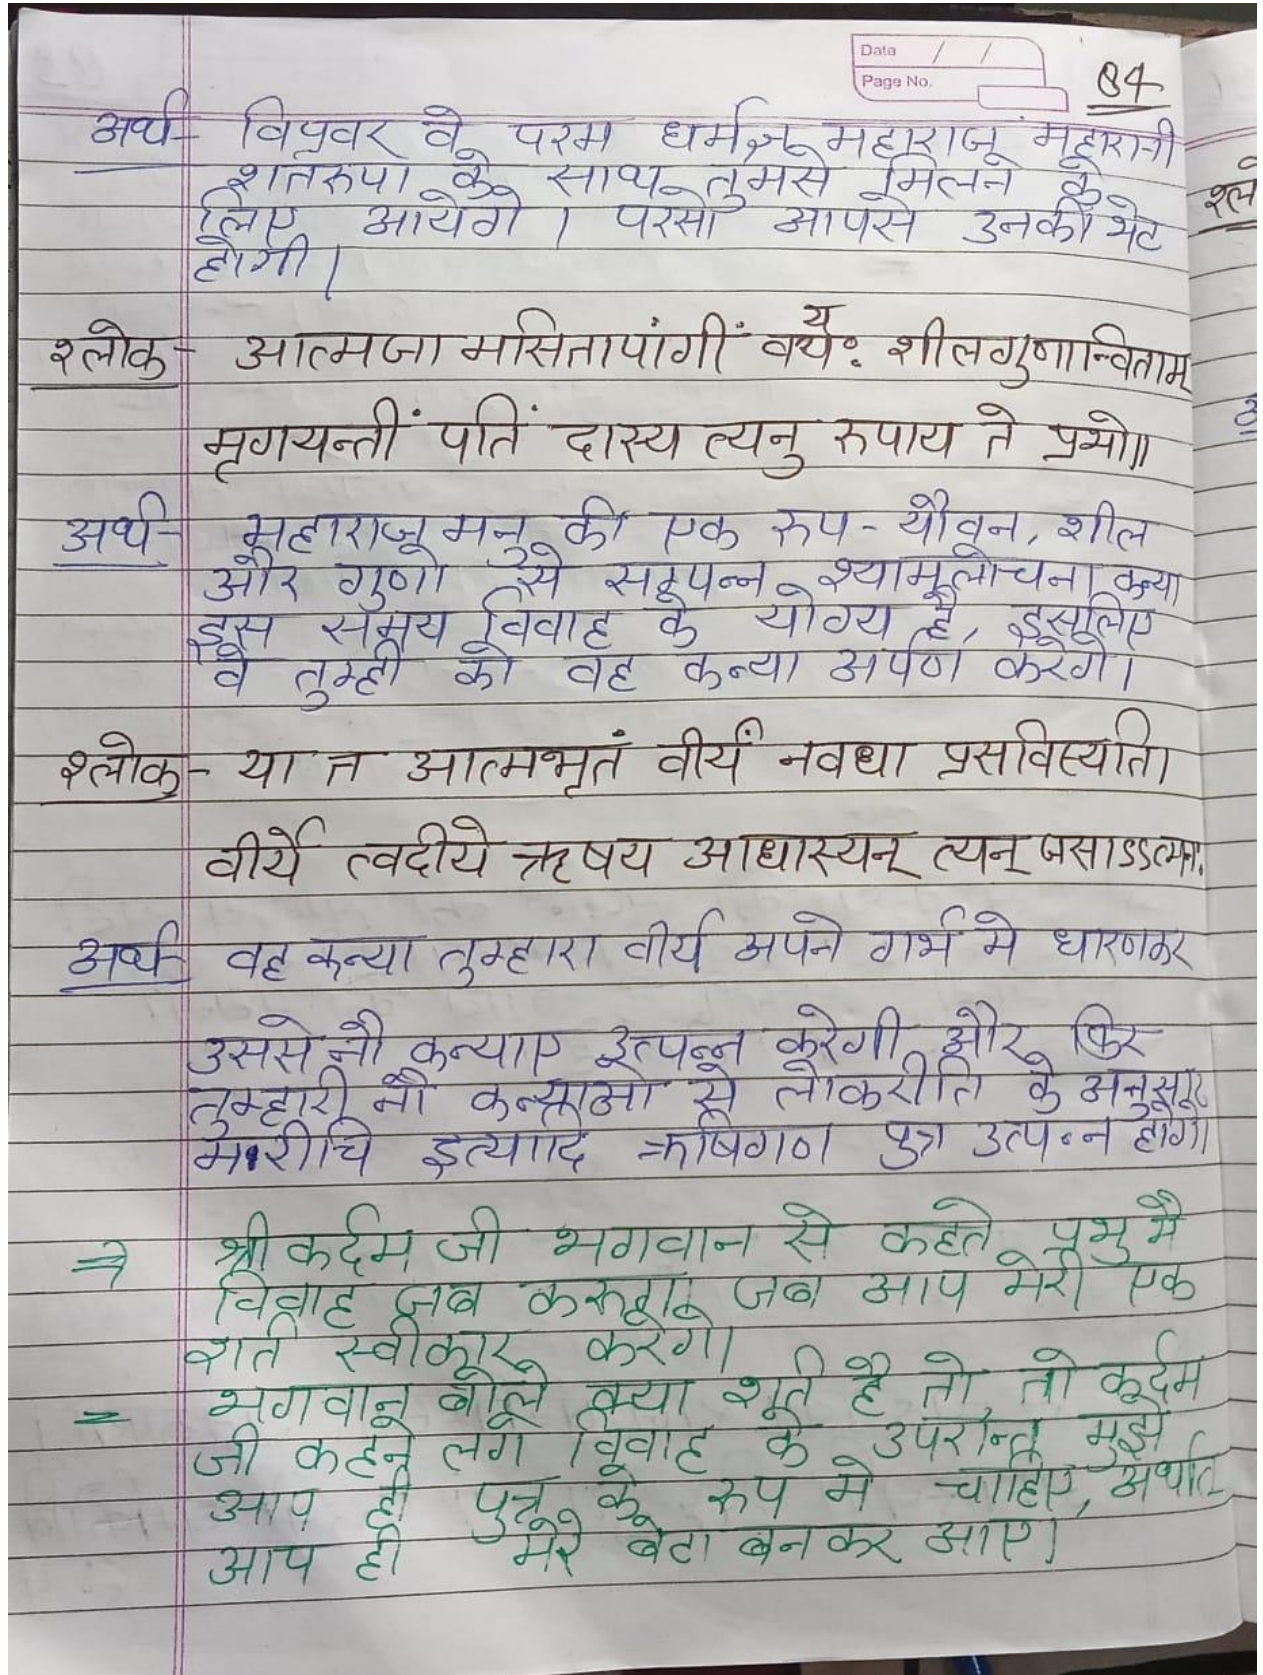 Data / /
Page No.
84
अर्थ- विप्रवर वे परम धर्मज्ञ महाराज महारानी
शतरुपा के साथ तुमसे मिलने के
लिए आयेगे । परसो आपसे उनकी भेट
होगी।
श्लोक- आत्मजा मसितापांगीं वयः शीलगुणान्विताम्
मृगयन्तीं पतिं दास्य त्यनु रुपाय ते प्रभो॥
अर्थ- महाराज मनु की एक रुप - यौवन, शील
और गुणो से सम्पन्न श्यामलोचना कन्या
इस समय विवाह के योग्य है, इसलिए
वे तुम्ही को वह कन्या अर्पण करेगे।
श्लोक- या त आत्मभृतं वीर्यं नवधा प्रसविस्यति।
वीर्ये त्वदीये ऋषय आधास्यन् त्यन् जसाऽऽत्मनः
अर्थ- वह कन्या तुम्हारा वीर्य अपने गर्भ मे धारणकर
उससे नौ कन्याए उत्पन्न करेगी और फिर
तुम्हारी नौ कन्याओ से लोकरीति के अनुसार
मरीचि इत्यादि ऋषिगण पुत्र उत्पन्न होगे।
⇒ श्री कर्दम जी भगवान से कहते प्रभु मै
विवाह जब करुगा जब आप मेरी एक
शर्त स्वीकार करेगे।
= भगवान बोले क्या शर्त है तो, तो कर्दम
जी कहने लगे विवाह के उपरान्त मुझे
आप ही पुत्र के रुप मे चाहिए, अर्थात
आप ही मेरे बेटा बन कर आए।
श्लो